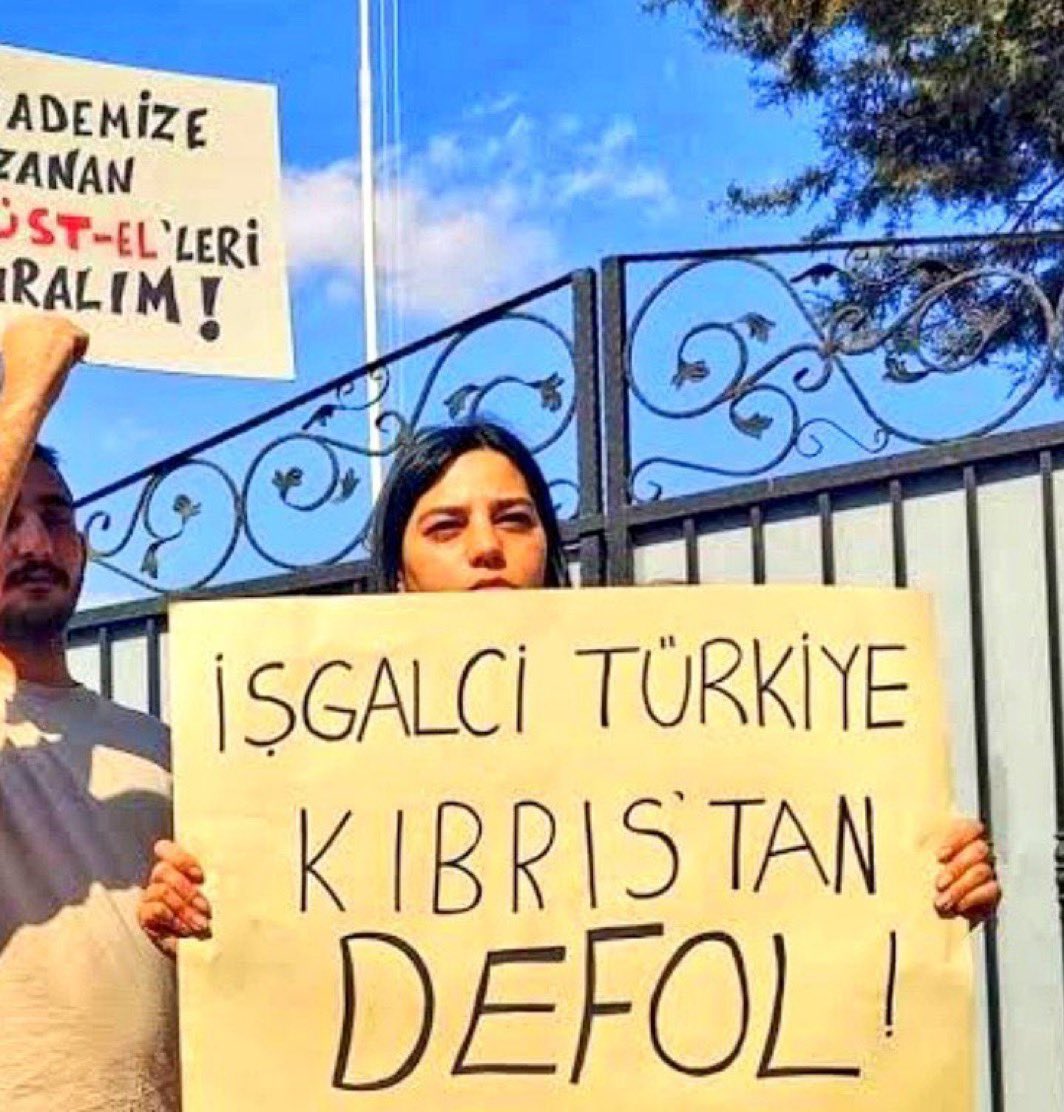 ADEMİZE
ZANAN
ÜST-EL'LERİ
IRALIM!
İŞGALCİ TÜRKİYE
KIBRIS'TAN
DEFOL!